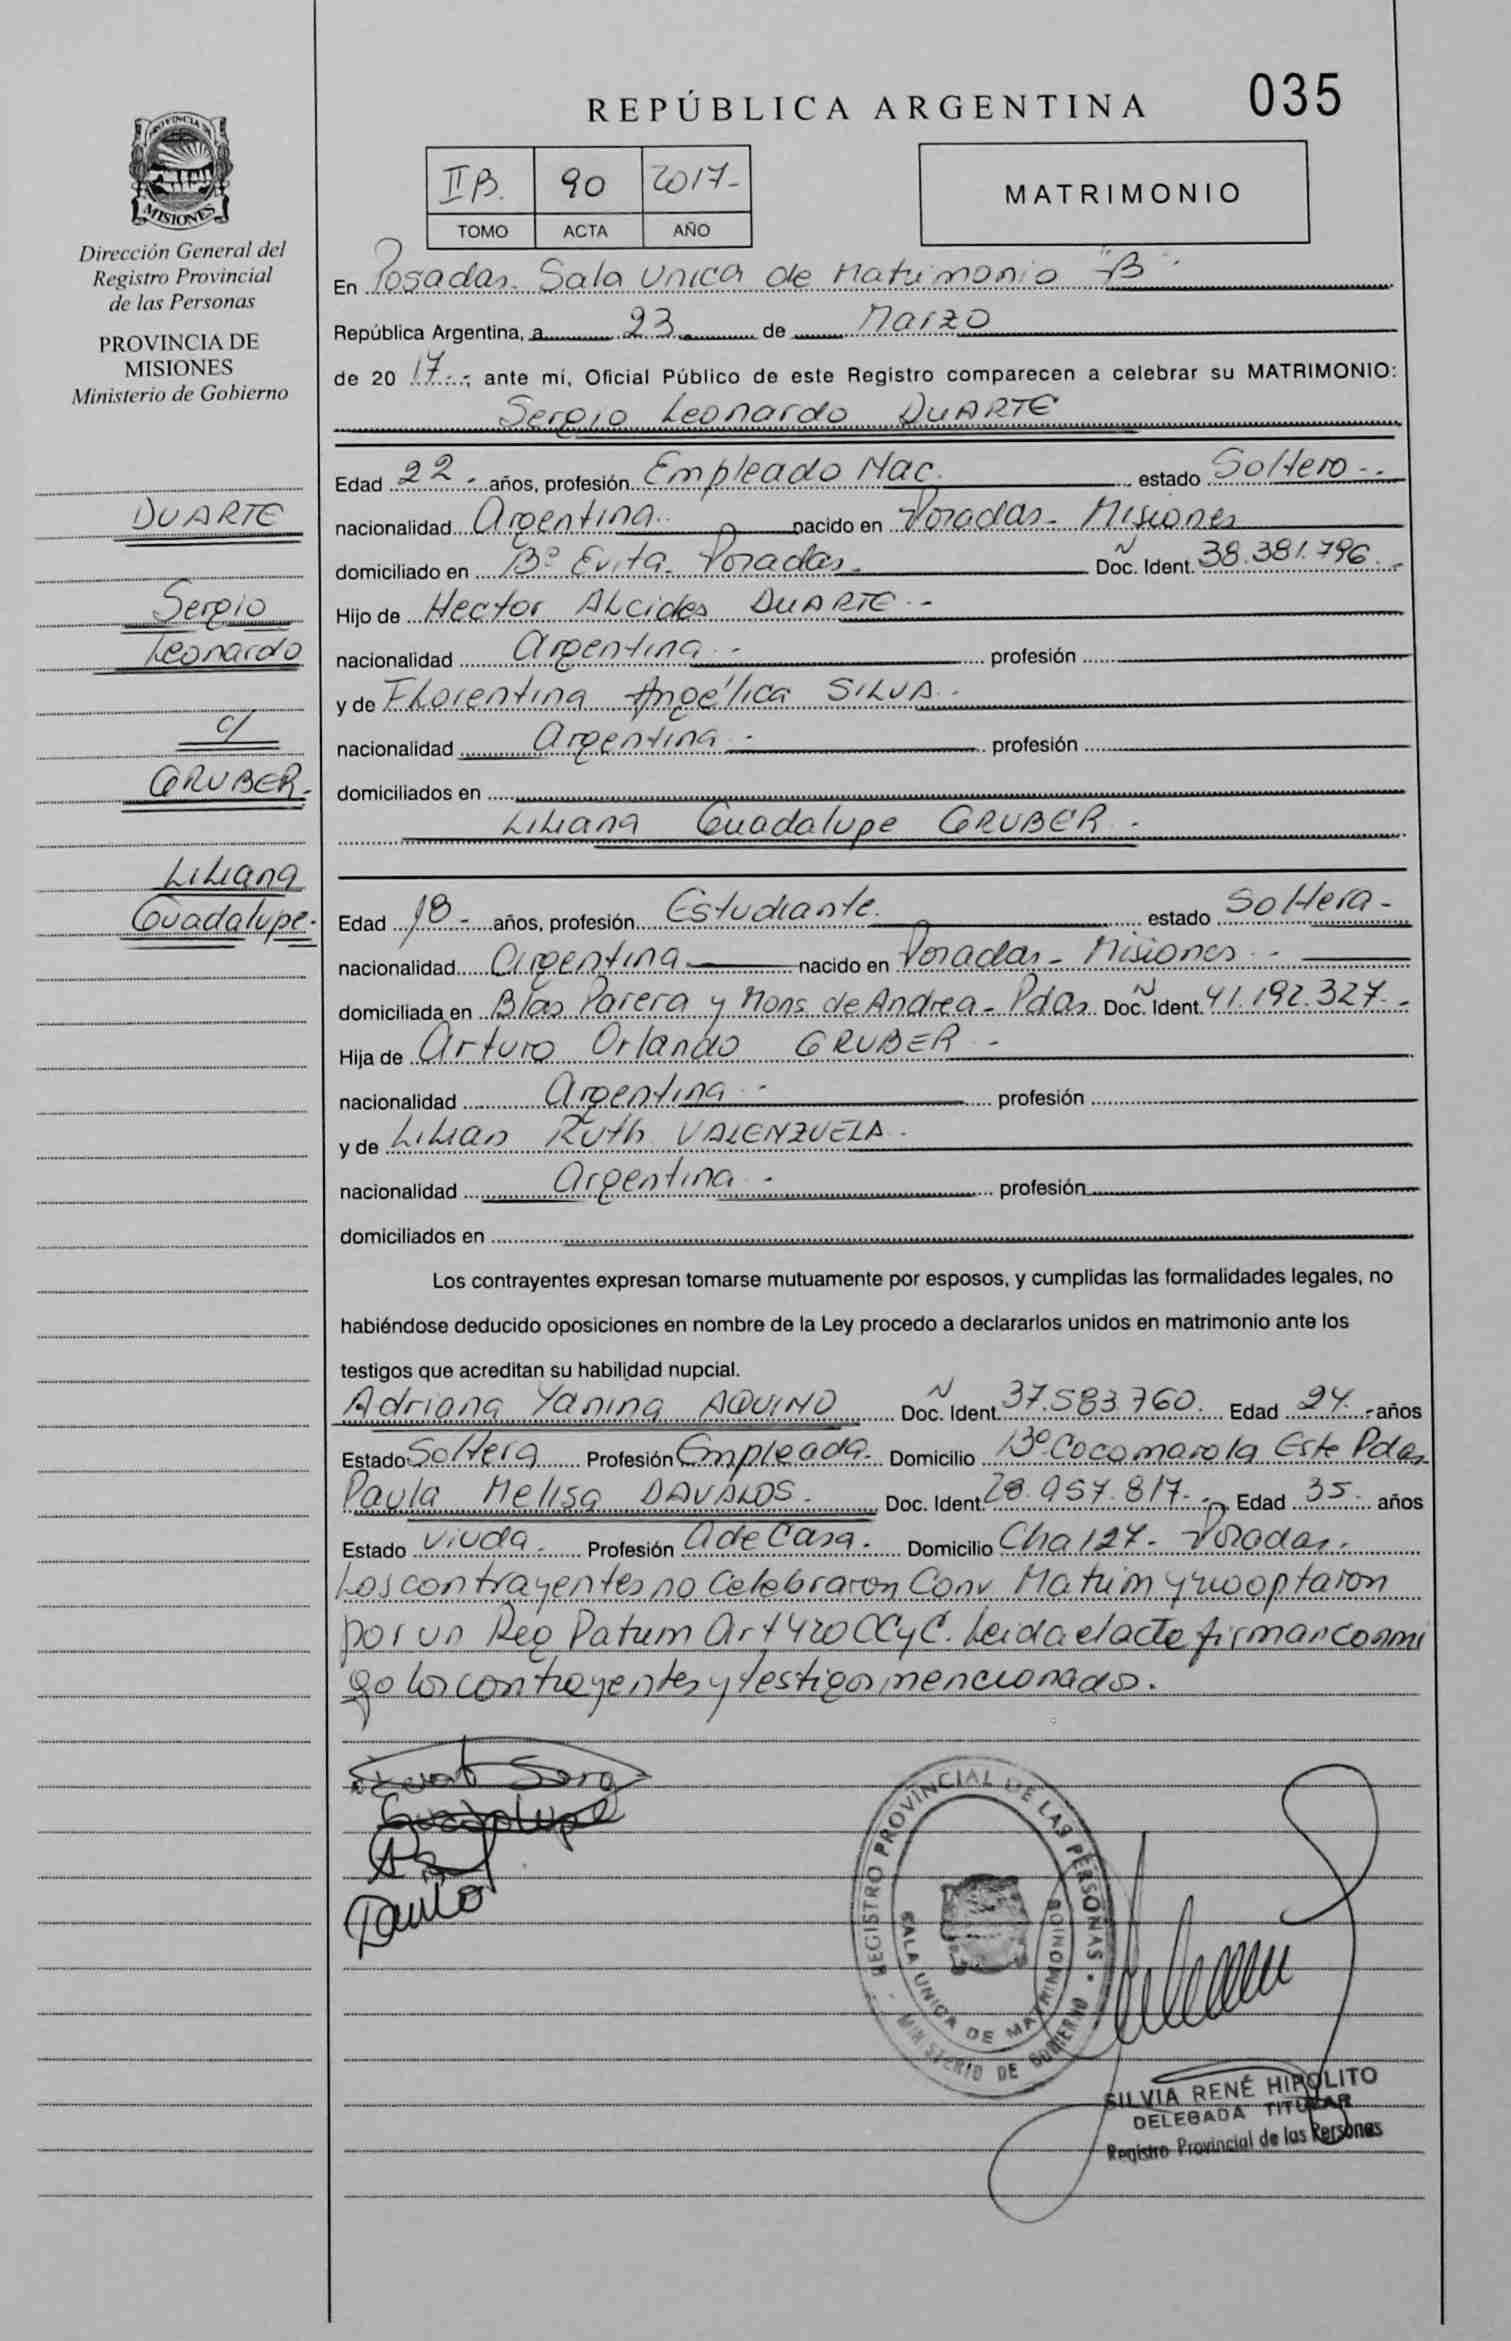 REPÚBLICA ARGENTINA 035
PROVINCIA DE
MISIONES
Dirección General del
Registro Provincial
de las Personas
PROVINCIA DE
MISIONES
Ministerio de Gobierno
DUARTE
Sergio
Leonardo
c/
GRUBER.
Liliana
Guadalupe.
IIB. 90 2017-
TOMO ACTA AÑO
MATRIMONIO
En Posadas. Sala Unica de Matrimonio "B"
República Argentina, a 23 de Marzo
de 20 17.-, ante mí, Oficial Público de este Registro comparecen a celebrar su MATRIMONIO:
Sergio Leonardo DUARTE
Edad 22.- años, profesión Empleado Mac. estado Soltero.-
nacionalidad Argentina. nacido en Posadas- Misiones
domiciliado en B° Evita- Posadas. Doc. Ident. 38.381.796.-
Hijo de Hector Alcides DUARTE.-
nacionalidad Argentina.- profesión
y de Florentina Angélica SILVA.-
nacionalidad Argentina.- profesión
domiciliados en
Liliana Guadalupe GRUBER.-
Edad 18- años, profesión Estudiante. estado Soltera-
nacionalidad Argentina nacido en Posadas- Misiones.-
domiciliada en Blas Parera y Mons. de Andrea- Pdas. Doc. Ident. 41.192.327.-
Hija de Arturo Orlando GRUBER.-
nacionalidad Argentina.- profesión
y de Lilian Ruth VALENZUELA.-
nacionalidad Argentina.- profesión
domiciliados en
Los contrayentes expresan tomarse mutuamente por esposos, y cumplidas las formalidades legales, no
habiéndose deducido oposiciones en nombre de la Ley procedo a declararlos unidos en matrimonio ante los
testigos que acreditan su habilidad nupcial.
Adriana Yanina AQUINO Doc. Ident. 37.583.760. Edad 24.- años
Estado Soltera Profesión Empleada. Domicilio B° Cocomarola Este Pdas
Paula Melisa DAVALOS.- Doc. Ident. 28.957.817.- Edad 35.- años
Estado Viuda.- Profesión A de Casa. Domicilio Cha 127- Posadas.
Los contrayentes no Celebraron Conv Matrim y no optaron
por un Reg Patrim Art 420 CCyC. Leida el acta firman conmi
go los contrayentes y testigos mencionados.
Guadalupe
REGISTRO PROVINCIAL DE LAS PERSONAS
MINISTERIO DE GOBIERNO
SALA UNICA DE MATRIMONIOS
SILVIA RENÉ HIPOLITO
DELEGADA TITULAR
Registro Provincial de las Personas